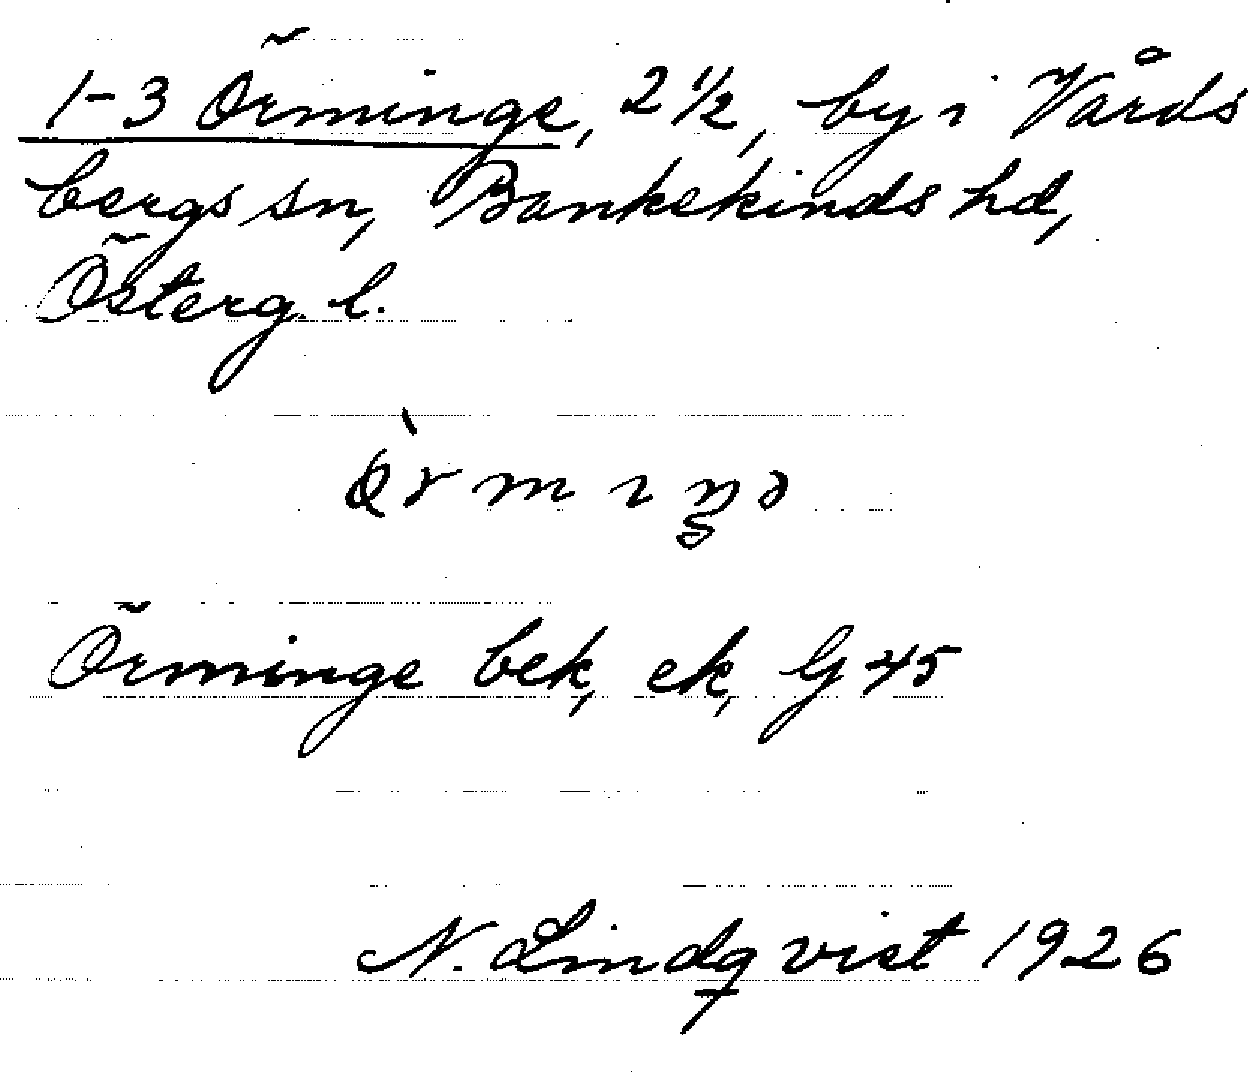 1-3 Örminge, 2 1/2, by i Vårds
bergs sn, Bankekinds hd,
Österg. l.
Örminge bek, ek, G 45
N. Lindqvist 1926